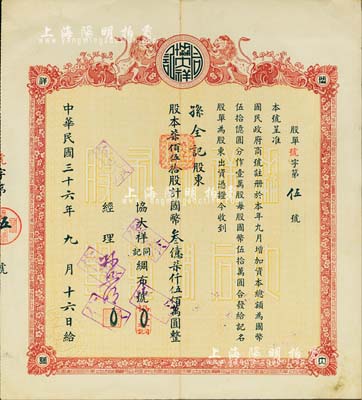 上海陽明拍賣
協大祥
股單號字第伍號
本號呈准
國民政府商號註冊於本年九月增加資本總額為國幣
伍拾億圓分作壹萬股每股國幣伍拾萬圓合發給記名
股單為股東出資憑證今收到
孫全記股東
股本柒佰伍拾股計國幣叁億柒仟伍佰萬圓整
協大祥同記綢布號
經理
中華民國三十六年九月十六日給
字第五號